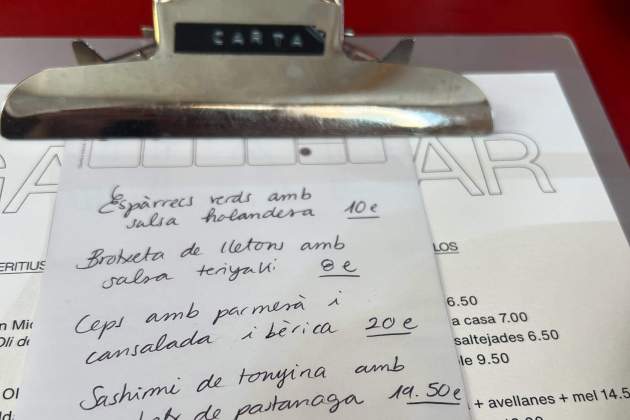 CARTA
Espàrrecs verds amb
salsa holandesa 10€
Brotxeta de lletons amb
salsa teriyaki 8€
Ceps amb parmesà i
cansalada ibèrica 20€
Sashimi de tonyina amb
de pastanaga 19.50€
ERITIUS
LOS
6.50
a casa 7.00
saltejades 6.50
le 9.50
+ avellanes + mel 14.5
n Mi
Oli d
Ol